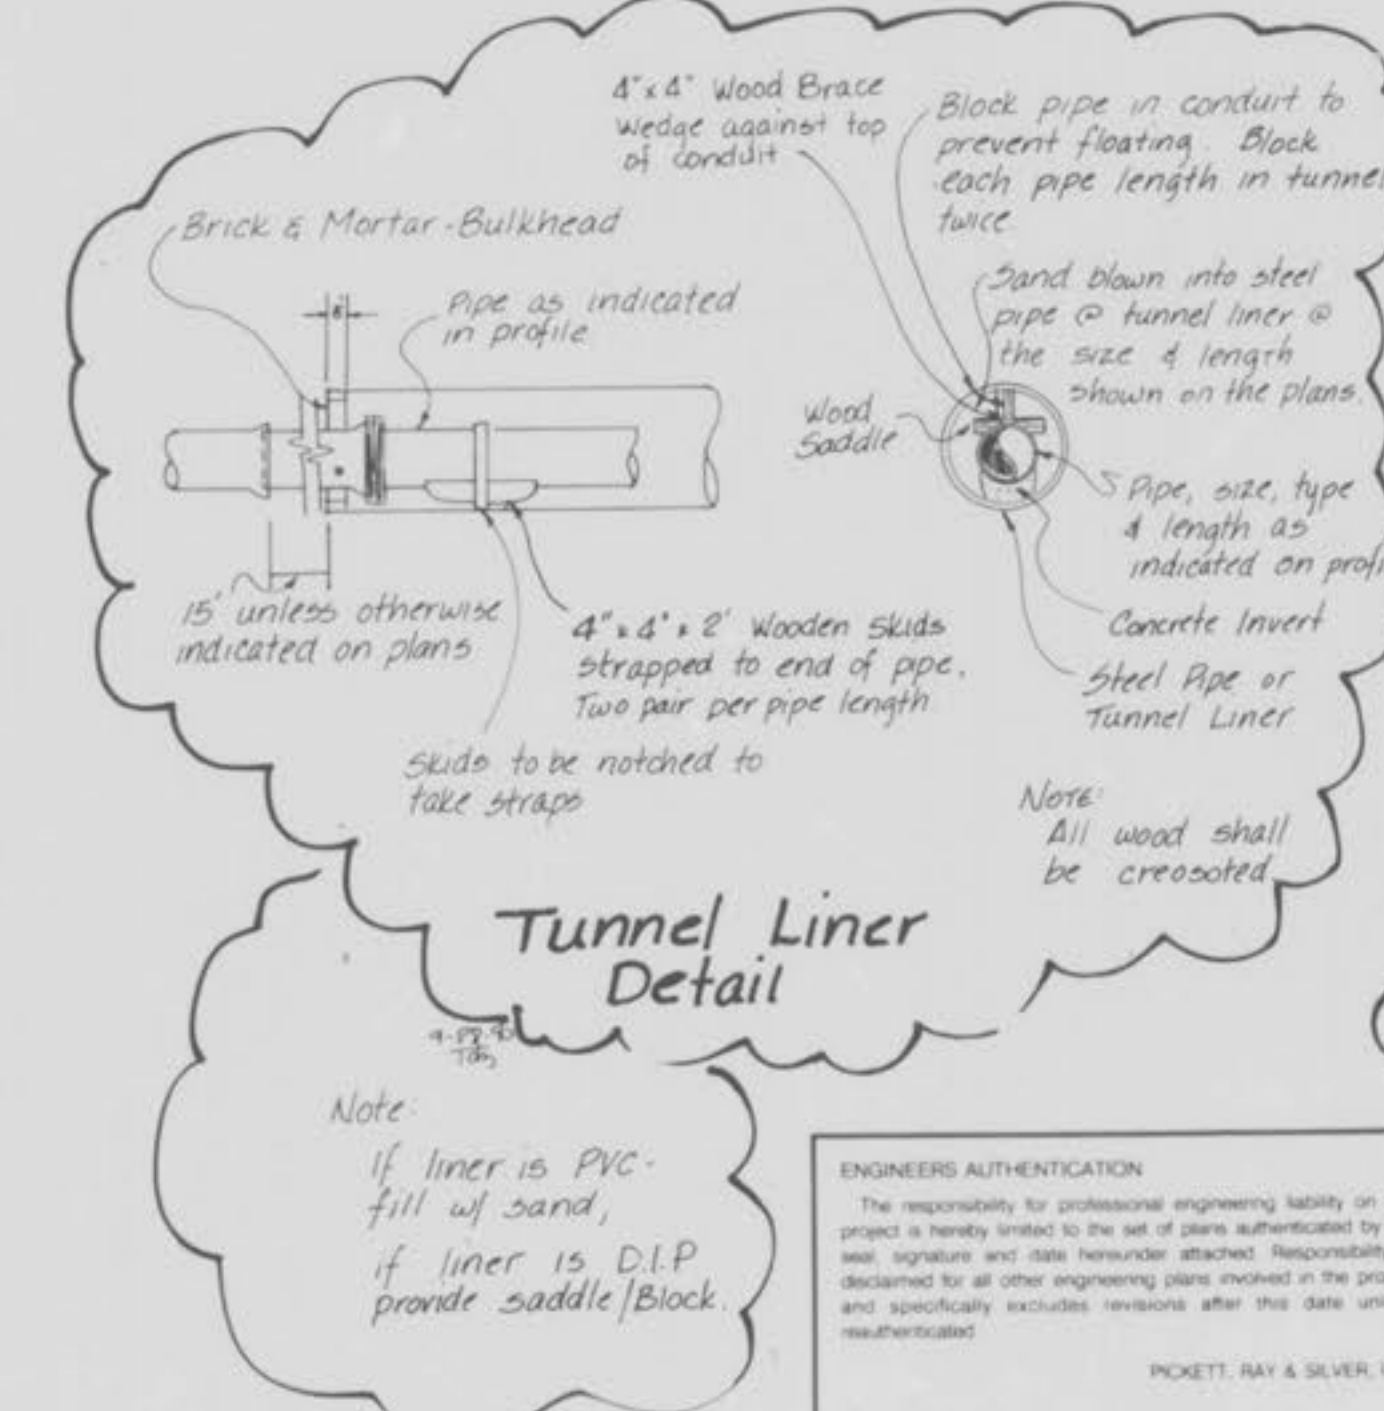 4" x 4" Wood Brace
Wedge against top
of conduit
Block pipe in conduit to
prevent floating. Block
each pipe length in tunnel
twice
Brick & Mortar-Bulkhead
Pipe as indicated
in profile
8"
Sand blown into steel
pipe @ tunnel liner @
the size & length
shown on the plans.
Wood
Saddle
Pipe, size, type
& length as
indicated on
15' unless otherwise
indicated on plans
4" x 4" x 2' Wooden Skids
strapped to end of pipe.
Two pair per pipe length
Concrete Invert
Steel Pipe or
Tunnel Liner
Skids to be notched to
take straps
NOTE:
All wood shall
be creosoted
Tunnel Liner
Detail
Note:
If liner is PVC-
fill w/ sand,
if liner is D.I.P
provide saddle/Block.
ENGINEERS AUTHENTICATION
The responsibility for professional engineering liability on
project is hereby limited to the set of plans authenticated by
seal, signature and date hereunder attached. Responsibility
disclaimed for all other engineering plans involved in the
and specifically excludes revisions after this date
reauthenticated
PICKETT, RAY & SILVER,